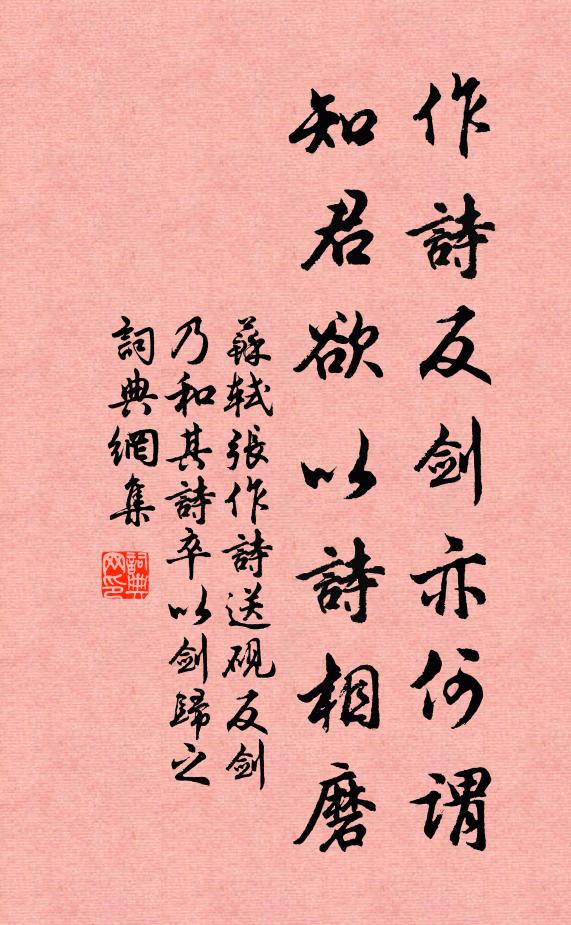 作詩反剑亦何谓
知君欲以詩相磨
蘇軾張作詩送砚反剑
乃和其詩卒以剑歸之
詞典網集
詞典网印